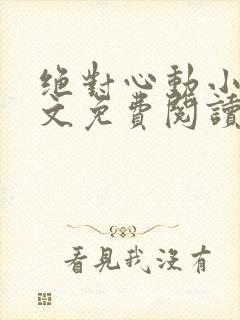 絕對心動小
文免費閱讀
看見我沒有